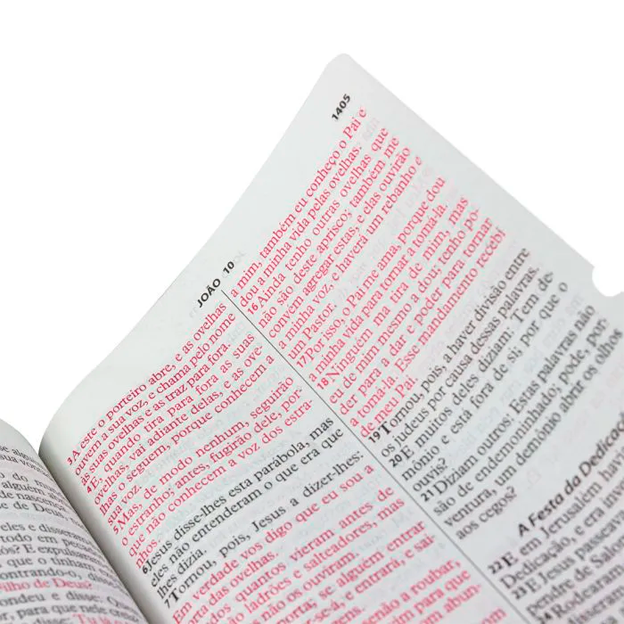 1405
JOÃO 10
3A este o porteiro abre, e as ovelhas
ouvem a sua voz, e chama pelo nome
às suas ovelhas e as traz para fora.
4E, quando tira para fora as suas
ovelhas, vai adiante delas, e as ove-
lhas o seguem, porque conhecem a
sua voz.
5Mas, de modo nenhum, seguirão
o estranho; antes, fugirão dele, por-
que não conhecem a voz dos estra-
nhos.
6Jesus disse-lhes esta parábola, mas
eles não entenderam o que era que
lhes dizia.
7Tornou, pois, Jesus a dizer-lhes:
Em verdade vos digo que eu sou a
porta das ovelhas.
dos quantos vieram antes de
são ladrões e salteadores, mas
as não os ouviram.
porta; se alguém entrar
ar-se-á, e entrará, e sai-
ens.
senão a roubar,
vim para que
am abun
mim, também eu conheço o Pai e
dou a minha vida pelas ovelhas.
16Ainda tenho outras ovelhas que
não são deste aprisco; também me
convém agregar estas, e elas ouvirão
a minha voz, e haverá um rebanho e
um Pastor.
17Por isso, o Pai me ama, porque dou
a minha vida para tornar a tomá-la.
18Ninguém ma tira de mim, mas
eu de mim mesmo a dou; tenho po-
der para a dar e poder para tornar
a tomá-la. Esse mandamento recebi
de meu Pai.
19Tornou, pois, a haver divisão entre
os judeus por causa dessas palavras.
20E muitos deles diziam: Tem de-
mônio e está fora de si; por que o
ouvis?
21Diziam outros: Estas palavras não
são de endemoninhado; pode, por-
ventura, um demônio abrir os olhos
aos cegos?
A Festa da Dedicaç
22E em Jerusalém hav
Dedicação, e era inv
23E Jesus passeav
pendre de Salom
Rodea